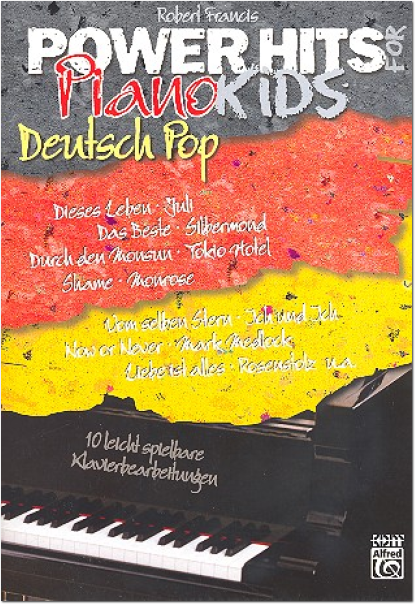 Robert Francis
POWER HITS FOR
Piano KIDS
Deutsch Pop
Dieses Leben · Juli
Das Beste · Silbermond
Durch den Monsun · Tokio Hotel
Shame · Monrose
Vom selben Stern · Ich und Ich
Now or Never · Mark Medlock
Liebe ist alles · Rosenstolz u.a.
10 leicht spielbare
Klavierbearbeitungen
Alfred